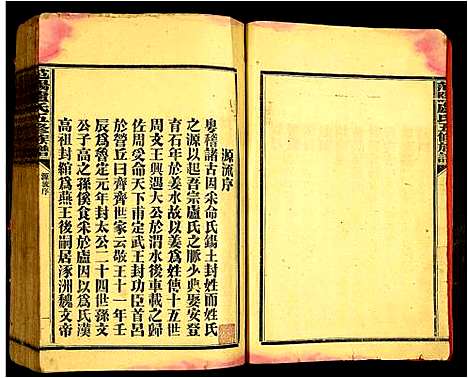 范陽盧氏五修族譜
源流序
源流序
粵稽諸古因采命氏錫土封姓而姓氏
之源以起吾宗盧氏之脈少典娶安登
育石年於姜水故以姜爲姓傳十五世
周文王興遇大公於渭水後車載之歸
佐周受命天下甫定武王封功臣首呂
於營丘曰齊齊世家云敬王十一年壬
辰爲定元年封太公二十四世孫文
公子高之孫傒食采於盧因以爲氏漢
高祖封綰爲燕王後嗣居涿洲魏文帝